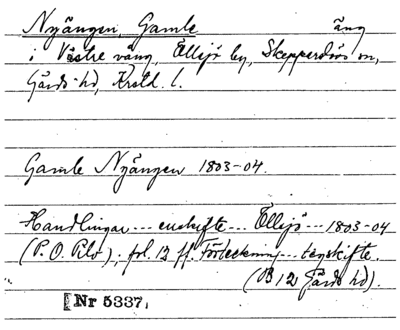 Nyängen, Gamle äng
i Västre vång, Ellsjö by, Skepperslövs sn,
Gärds hd, Krstd. l.
Gamle Nyängen 1803-04.
Handlingar --- enskifte --- Ellsjö --- 1803-04
(P. O. Pilo); fol. 12 ff. Förteckning --- tegskifte.
(B 12 Gärds hd).
[Nr 5337,